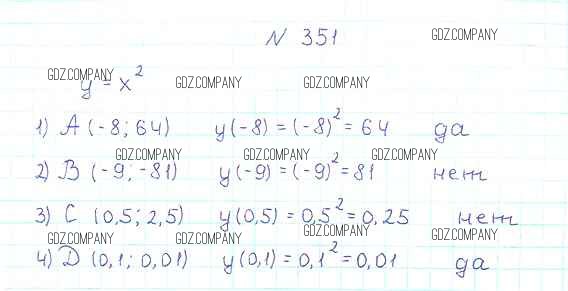 N 351
GDZ.COMPANY
GDZ.COMPANY
y = x²
GDZ.COMPANY GDZ.COMPANY
1) A (-8; 64) y(-8) = (-8)² = 64 да
GDZ.COMPANY GDZ.COMPANY GDZ.COMPANY
2) B (-9; -81) y(-9) = (-9)² = 81 нет
3) C (0,5; 2,5) y(0,5) = 0,5² = 0,25 нет
GDZ.COMPANY GDZ.COMPANY GDZ.COMPANY GDZ.COMPANY
4) D (0,1; 0,01) y(0,1) = 0,1² = 0,01 да